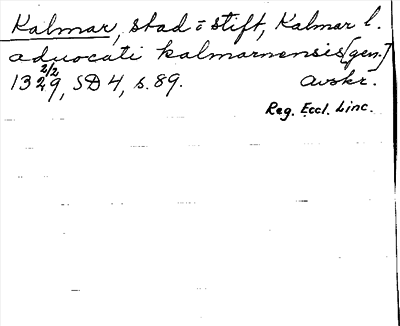 Kalmar, stad o stift, Kalmar l.
aduocati kalmarnensis [gen.]
1329 2/2, SD 4, s. 89. Avskr.
Reg. Eccl. Linc.